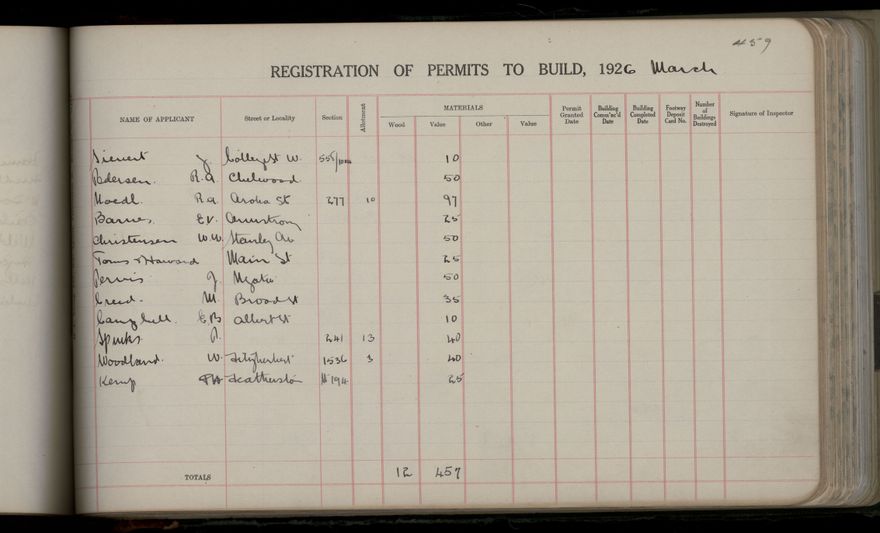 459
REGISTRATION OF PERMITS TO BUILD, 1926 March
NAME OF APPLICANT Street or Locality Section Allotment MATERIALS Wood Value Other Value Permit Granted Date Building Comm'nc'd Date Building Completed Date Footway Deposit Card No. Number of Buildings Destroyed Signature of Inspector
Sievert J. College St W. 10
Pedersen. R.A. Chelwood 50
R.A. Aroha St 277 10 97
Barnes. E.V. Armstrong 25
Christensen W.W. Stanley Av 50
Toms & Howard Main St 25
J. Ngata 50
Creed. M. Broad St 35
Campbell. E B Albert St 10
Spinks. 241 13 40
Woodland. W. Fitzherbert 1536 3 40
Kemp Featherston 194 25
TOTALS 12 457